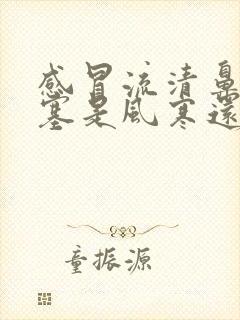 感冒流清鼻
塞是風寒還
童振源